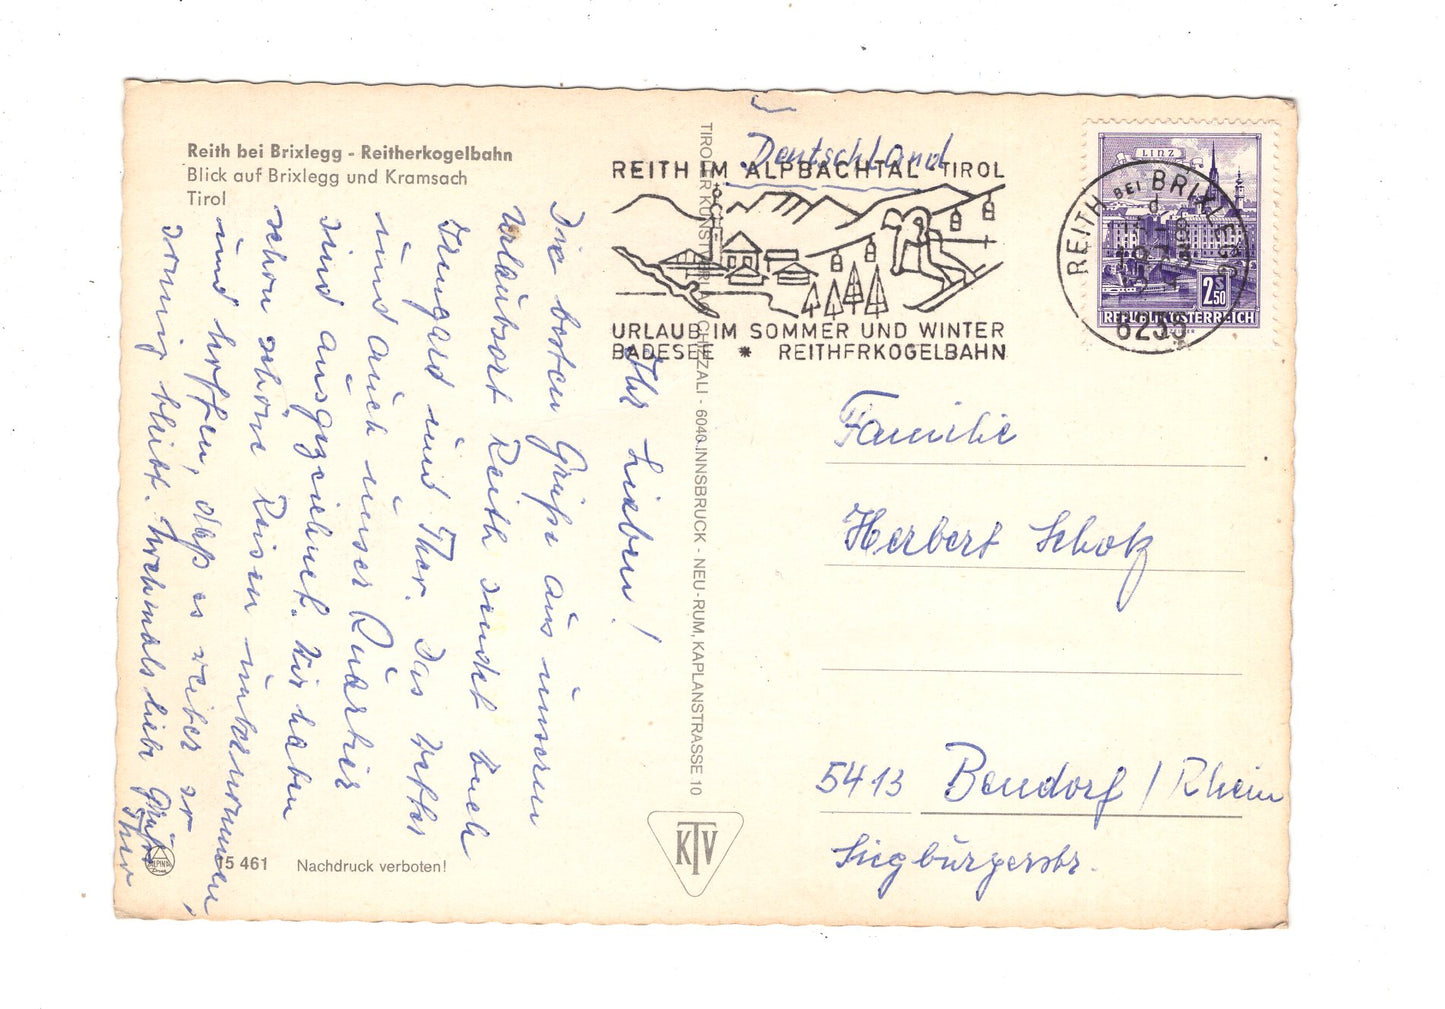 Reith bei Brixlegg - Reitherkogelbahn
Blick auf Brixlegg und Kramsach
Tirol
Deutschland
REITH IM ALPBACHTAL TIROL
URLAUB IM SOMMER UND WINTER
BADESEE * REITHERKOGELBAHN
LINZ
2.50 S
REPUBLIK ÖSTERREICH
REITH BEI BRIXLEGG
d
6235
TIROLER KUNSTVERLAG CHIZZALI - 6040 INNSBRUCK - NEU-RUM, KAPLANSTRASSE 10
Ihr Lieben!
Die besten Grüße aus unserem
Urlaubsort Reith sendet Euch
Irmgard und Theo. Das Wetter
und auch unser Quartier
sind ausgezeichnet. Wir haben
schon schöne Reisen unternommen,
und hoffen, daß es weiter so
sonnig bleibt. Nochmals liebe Grüße
Familie
Herbert Scholz
5413 Bendorf / Rhein
Siegburgerstr.
KTV
ALPINA
Druck
15 461 Nachdruck verboten!